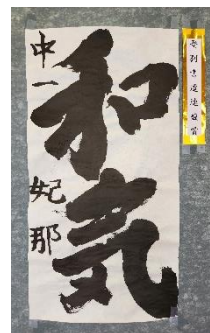 和気
中一 妃那